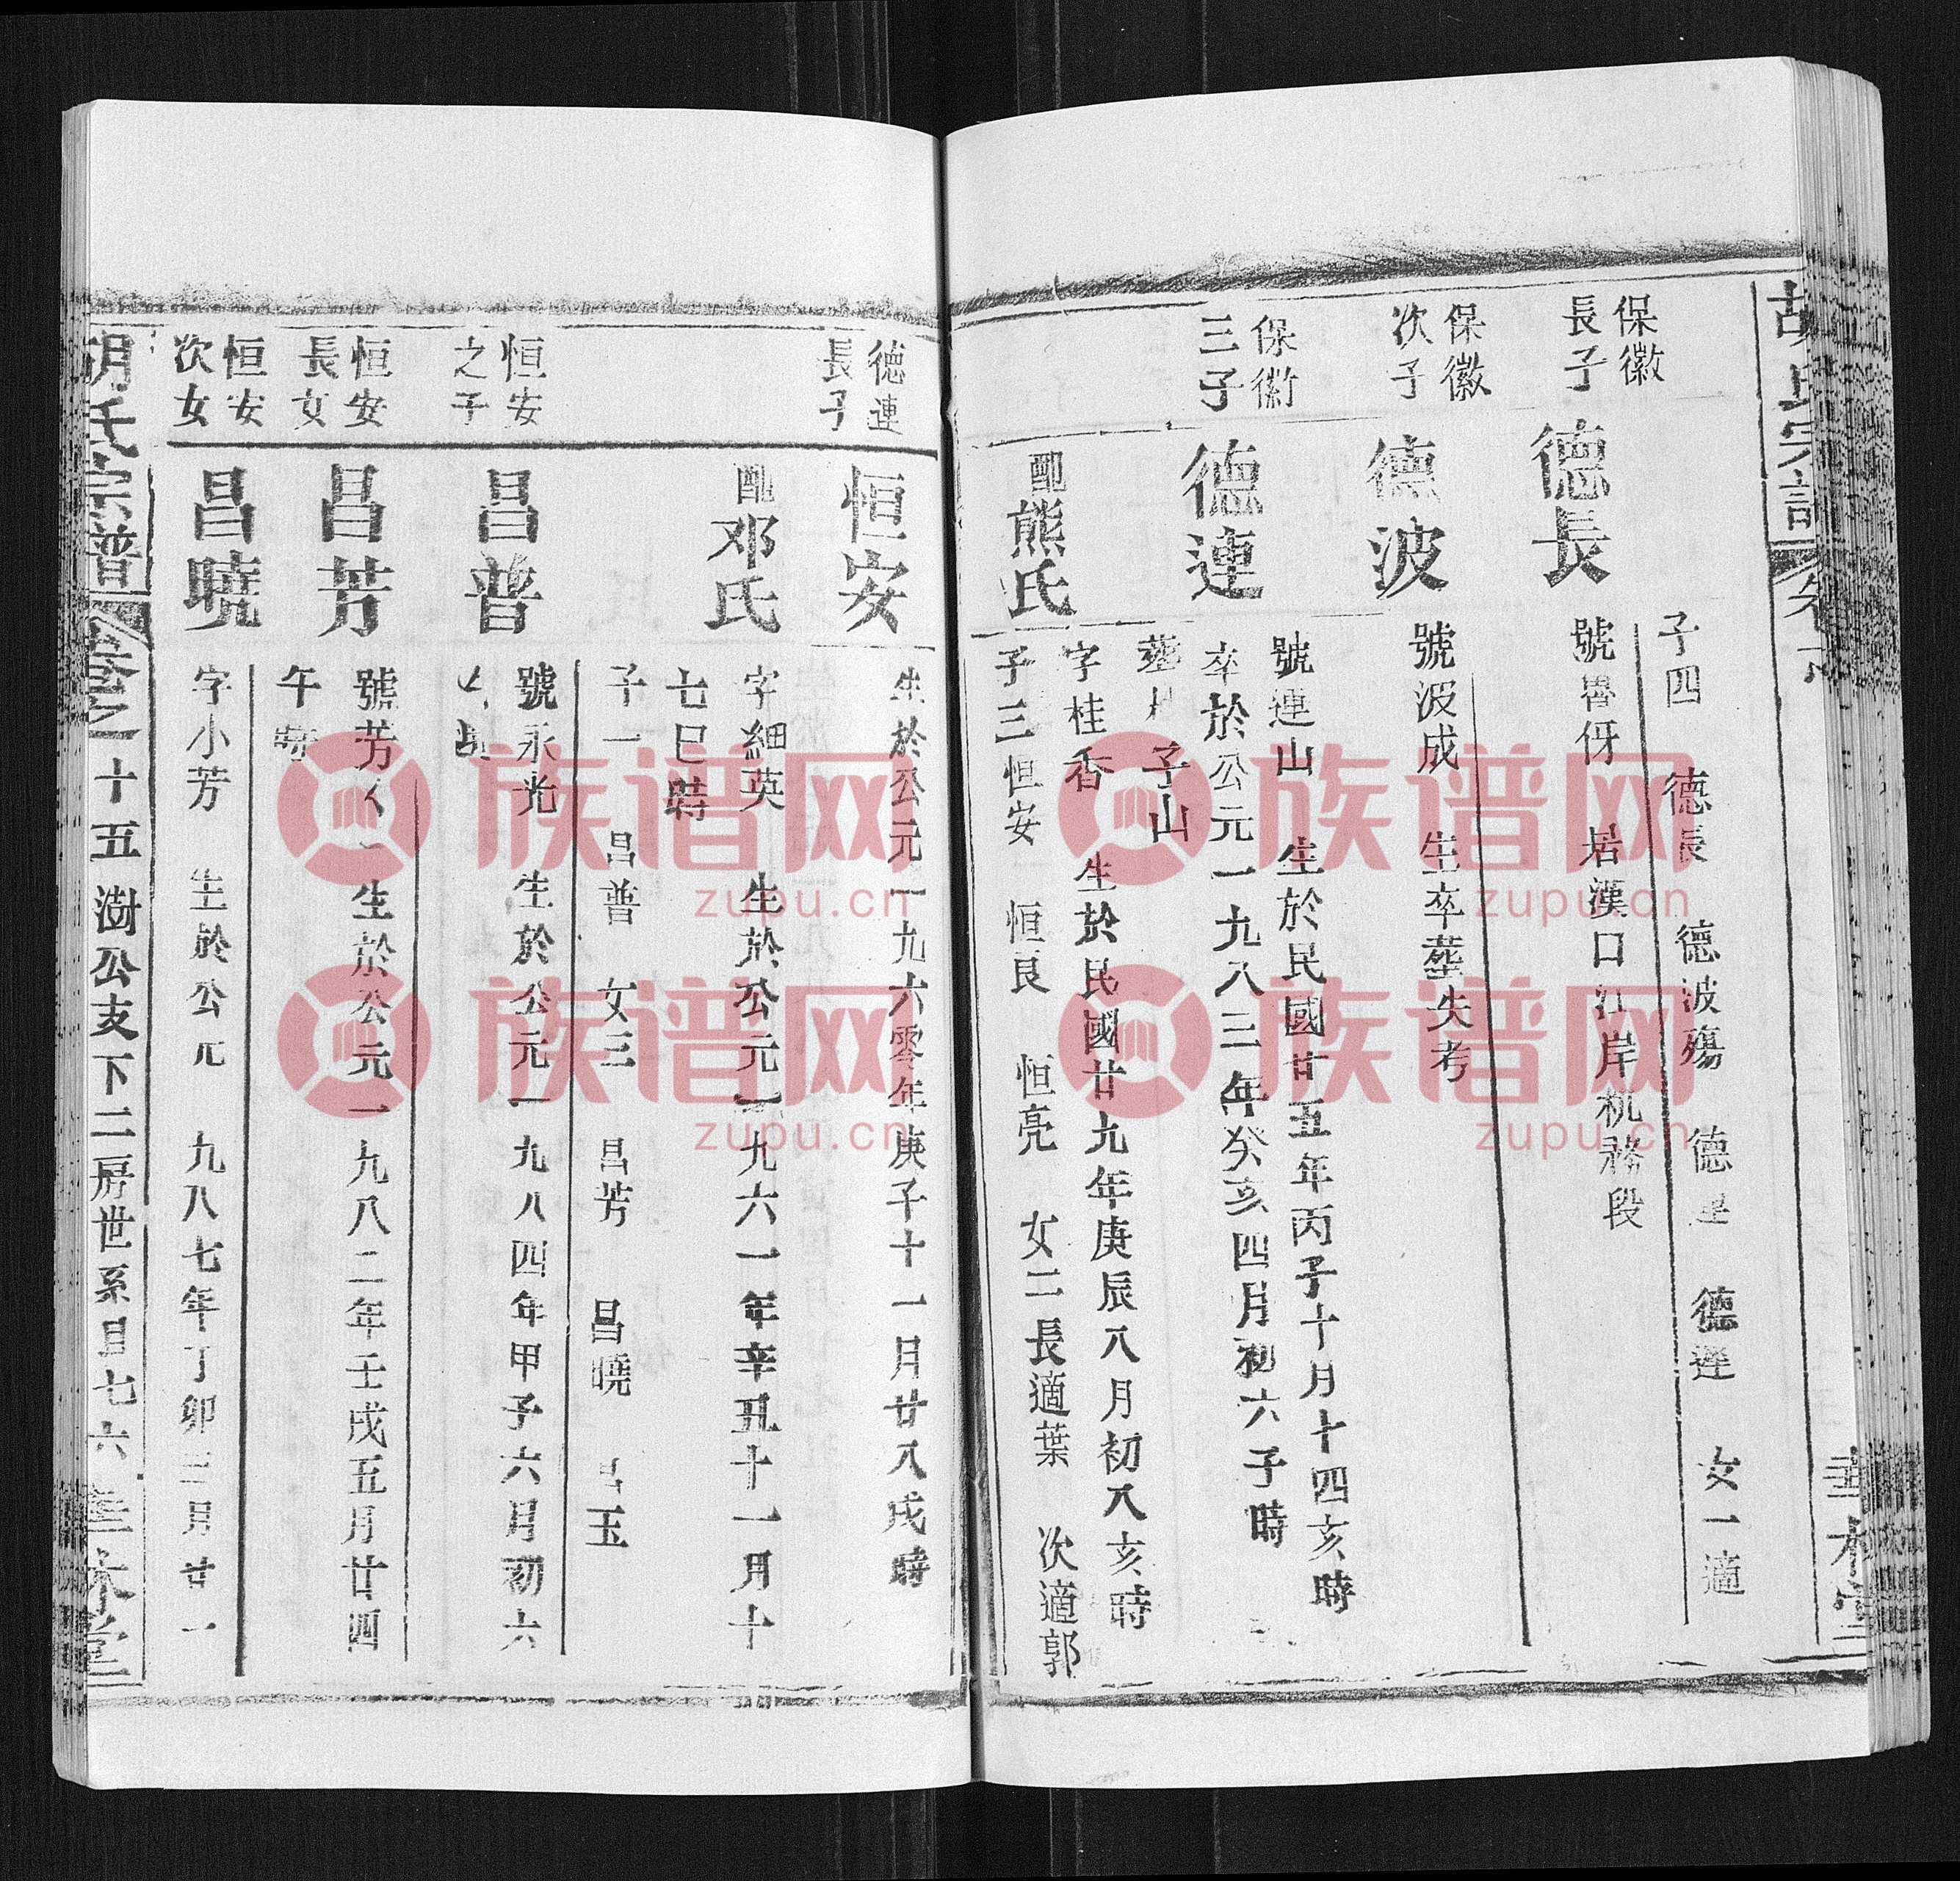 胡氏宗譜
子四 德長 德波殤 德連 女一適
保徽
長子
德長
號魯伢 居漢口江岸机務段
保徽
次子
德波
號波成 生卒塟失考
保徽
三子
德連
號連山 生於民國廿五年丙子十月十四亥時
卒於公元一九八三年癸亥四月初六子時
子山
配熊氏
字桂香 生於民國廿九年庚辰八月初八亥時
子三 恒安 恒良 恒亮 女二 長適葉 次適郭
德連
長子
恒安
生於公元一九六零年庚子十一月廿八戌時
配邓氏
字細英 生於公元一九六一年辛丑十一月十
七巳時
子一 昌普 女三 昌芳 昌曉 玉
恒安
之子
昌普
號永光 生於公元一九八四年甲子六月初六
恒安
長女
昌芳
號芳 生於公元一九八二年壬戌五月廿四
午時
恒安
次女
昌曉
字小芳 生於公元 九八七年丁卯三月廿一
胡氏宗普 卷之 十五澍公支下二房世系目七六 垂木堂
族谱网
zupu.cn
族谱网
zupu.cn
族谱网
zupu.cn
族谱网
zupu.cn